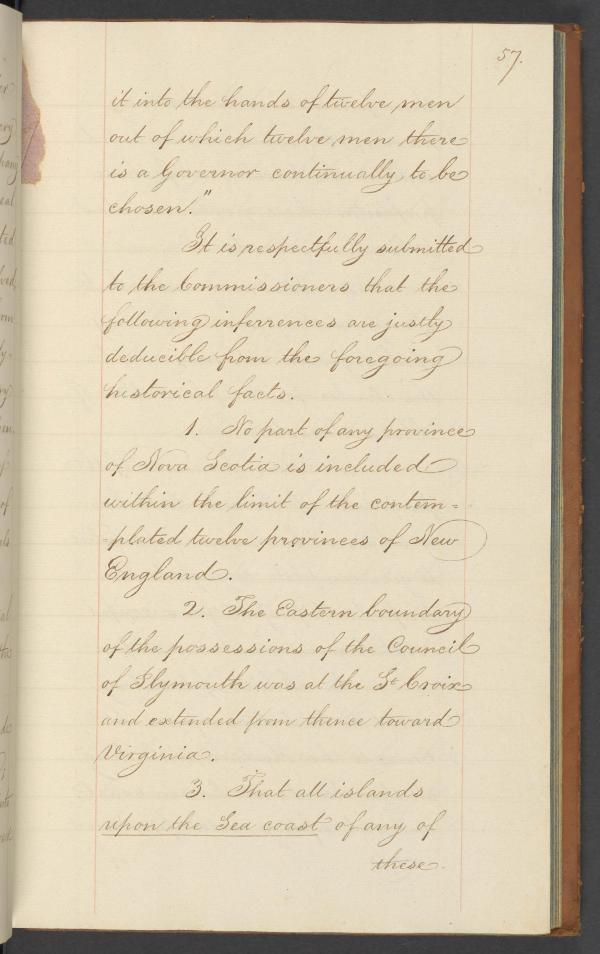 57.
it into the hands of twelve men
out of which twelve men there
is a Governor continually to be
chosen."
It is respectfully submitted
to the Commissioners that the
following inferrences are justly
deducible from the foregoing
historical facts.
1. No part of any province
of Nova Scotia is included
within the limit of the contem=
=plated twelve provinces of New
England.
2. The Eastern boundary
of the possessions of the Council
of Plymouth was at the St Croix
and extended from thence toward
Virginia.
3. That all islands
upon the Sea coast of any of
these